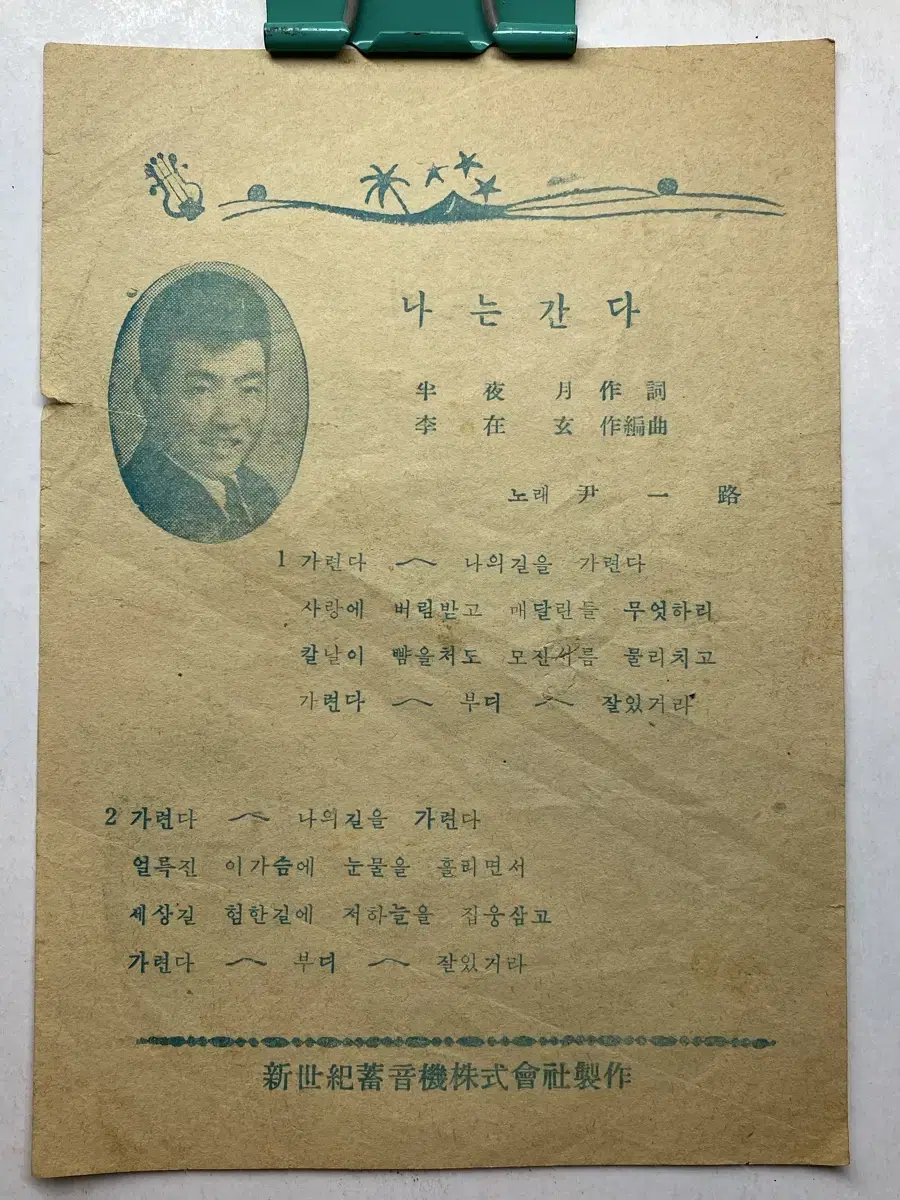 나는간다
半夜月作詞
李在玄作編曲
노래 尹一路
1 가련다 〜 나의길을 가련다
사랑에 버림받고 매달린들 무엇하리
칼날이 뺨을처도 모진서름 물리치고
가련다 〜 부디 〜 잘있거라
2 가련다 〜 나의길을 가련다
얼룩진 이가슴에 눈물을 흘리면서
세상길 험한길에 저하늘을 집웅삼고
가련다 〜 부디 〜 잘있거라
新世紀蓄音機株式會社製作